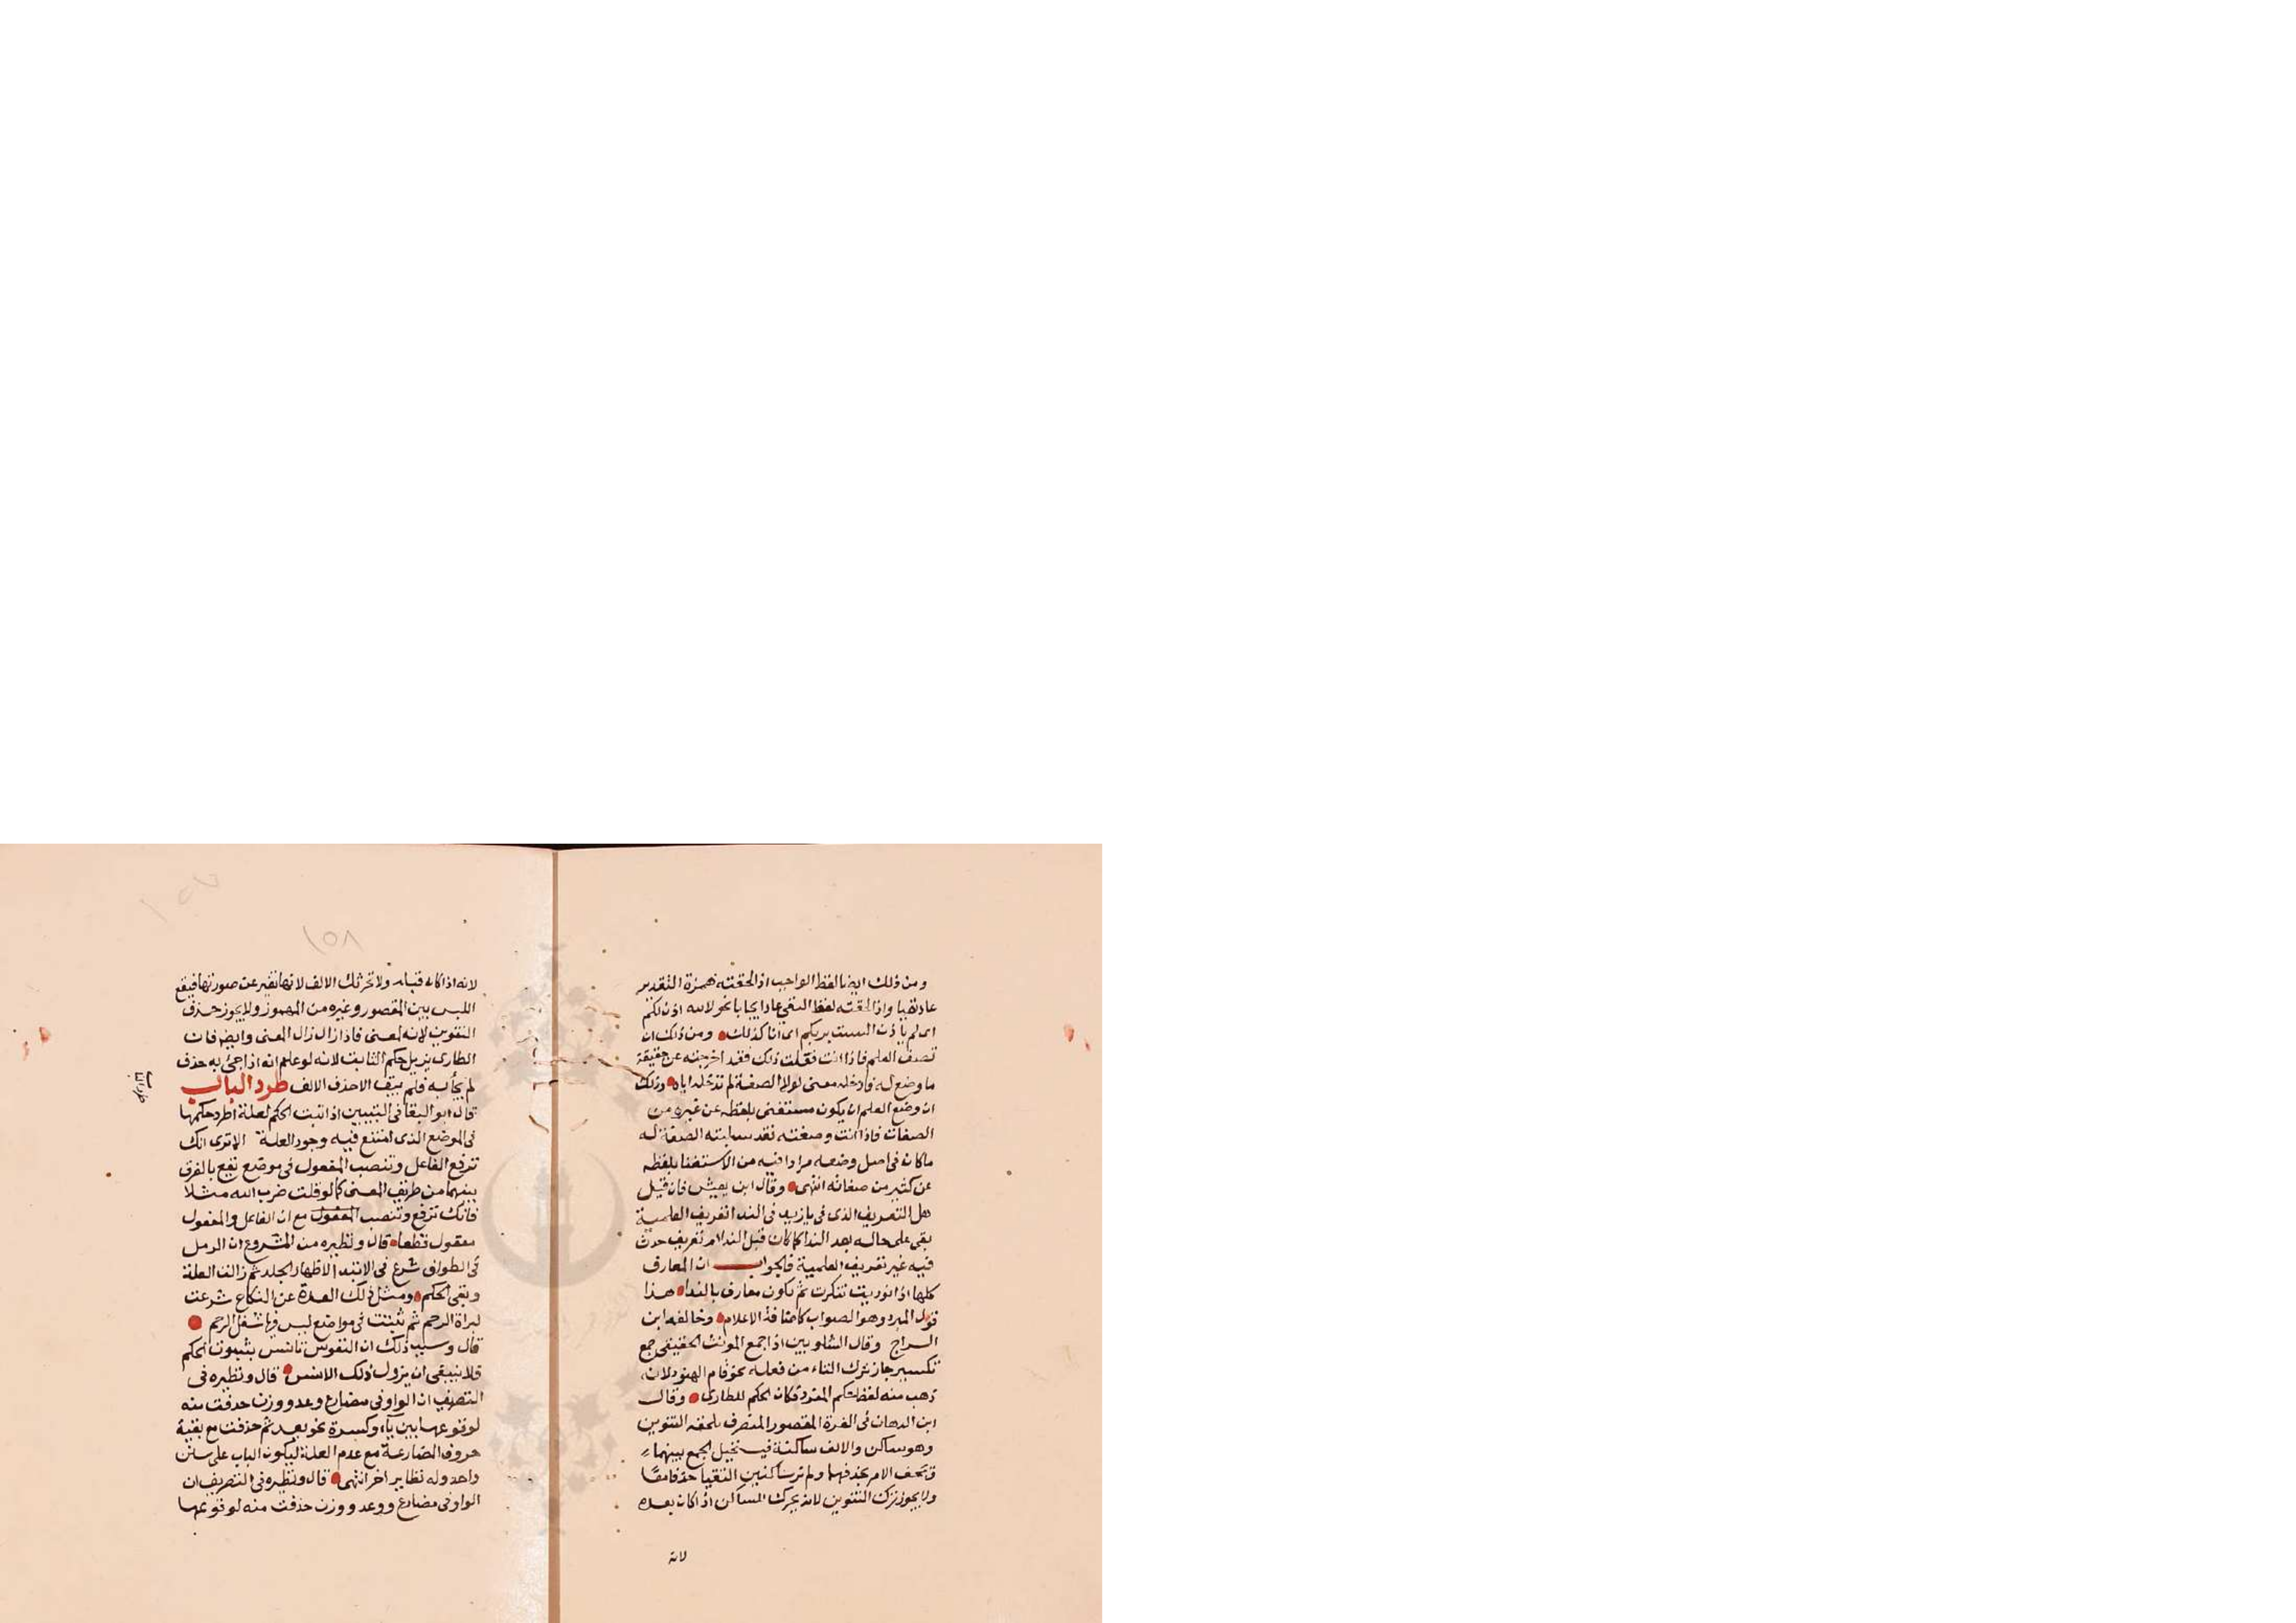 ومن ذلك ايضا لفظ الواجب اذا لحقته همزة التقدير
عاد نفيا واذا لحقته لفظ النفي عاد ايجابا نحو لالله اذن لكم
اى لم ياذن الست بربكم اى انا كذلك ومن ذلك ان
تصف العلم فاذا انت فعلت ذلك فقد اخرجته عن حقيقة
ما وضع له فادخله معنى لولا الصفة لم تدخله اياه وذلك
ان وضع العلم ان يكون مستغنى بلفظه عن غيره من
الصفات فاذا انت وصفته فقد سلبته الصفة له
ما كان في اصل وضعه مرادا فيه من الاستغنا بلفظه
عن كثير من صفاته انتهى وقال ابن يعيش فان قيل
هل التعريف الذى في يا زيد فى الندا تعريف العلمية
بقى على حاله بعد الندا كما كان قبل الندا ام تعريف حدث
فيه غير تعريف العلمية فالجواب ان المعارف
كلها اذا نوديت تنكرت ثم تكون معارف بالندا هذا
قول المبرد وهو الصواب كاضافة الاعلام وخالفه ابن
السراج وقال الشلوبين اذا جمع المونث الحقيقى جمع
تكسير جاز ترك التاء من فعله نحو قام الهنود لانه
ذهب منه لفظ حكم المفرد فكان الحكم للطارى وقال
ابن الدهان فى الغرة المقصور المنصرف يلحقه التنوين
وهو ساكن والالف ساكنة فيستحيل الجمع بينهما
الامر بحذفهما ولم نر ساكنين التقيا حذفا معا
ولا يجوز ترك التنوين لانه يحرك الساكن اذا كان بعده
لانه
١٥٧
١٥٨
لانه اذا كان قبله ولا تحريك الالف لانها تغير عن صورتها فيقع
اللبس بين المقصور وغيره من المهموز ولا يجوز حذف
التنوين لانه لمعنى فاذا زال زال المعنى وايضا فان
الطارى يزيل حكم الثابت لانه لو علم انه اذا جئ به حذف
لم يجأ به فلم يبق الا حذف الالف طرد الباب
قال ابو البقا فى التبيين اذا ثبت الحكم لعلة اطرد حكمها
فى الموضع الذى امتنع فيه وجود العلة الا ترى انك
ترفع الفاعل وتنصب المفعول فى موضع يقع بالفرق
بينهما من طريق المعنى كما لو قلت ضرب الله مثلا
فانك ترفع وتنصب المفعول مع ان الفاعل والمفعول
معقول قطعا قال ونظيره من المشروع ان الرمل
فى الطواف شرع فى الابتدا لاظهار الجلد ثم زالت العلة
وبقى الحكم ومثل ذلك العدة عن النكاح شرعت
لبراة الرحم ثم ثبتت فى مواضع ليس فيها شغل الرحم
قال وسبب ذلك ان النفوس تانس بثبوت الحكم
فلا ينبغى ان يزول ذلك الانس قال ونظيره فى
التصريف ان الواو فى مضارع وعد ووزن حذفت منه
لوقوعها بين ياء وكسرة نحو يعد ثم حذفت مع بقية
حروف المضارعة مع عدم العلة ليكون الباب على سنن
واحد وله نظاير اخر انتهى قال ونظيره فى التصريف ان
الواو فى مضارع ووعد ووزن حذفت منه لوقوعها
طرد الباب